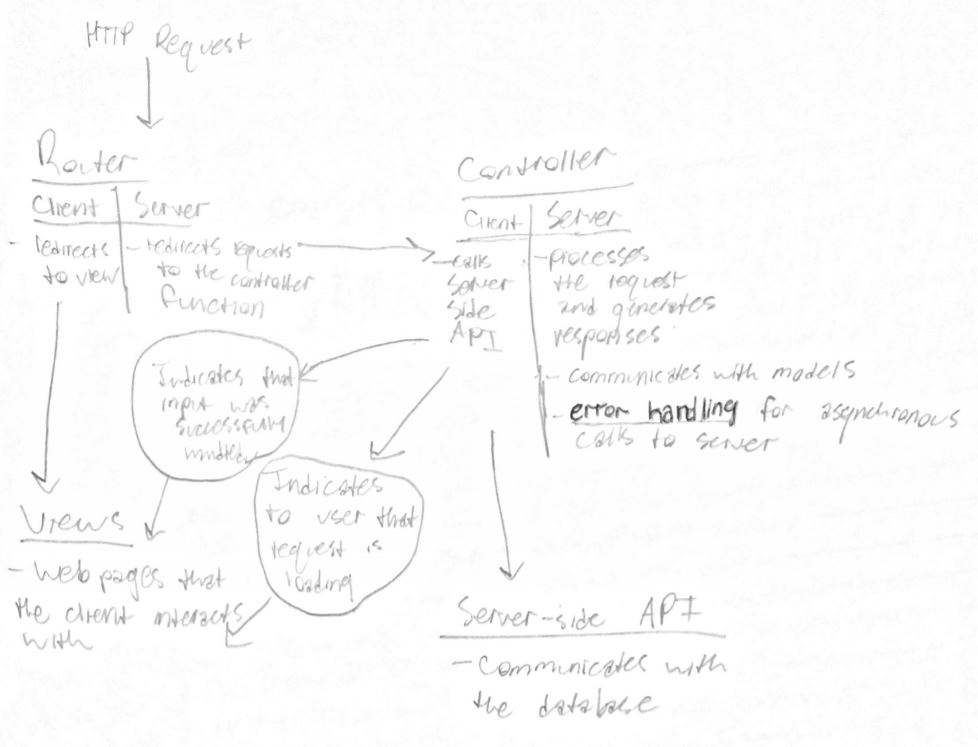 HTTP Request
Router
Client Server
- redirects
to view
- redirects requests
to the controller
function
Controller
Client Server
- calls
Server
Side
API
- processes
the request
and generates
responses
- communicates with models
- error handling for asynchronous
calls to server
Indicates that
input was
successfully
handled
Indicates
to user that
request is
loading
Views
- Web pages that
the client interacts
with
Server-side API
- Communicates with
the database